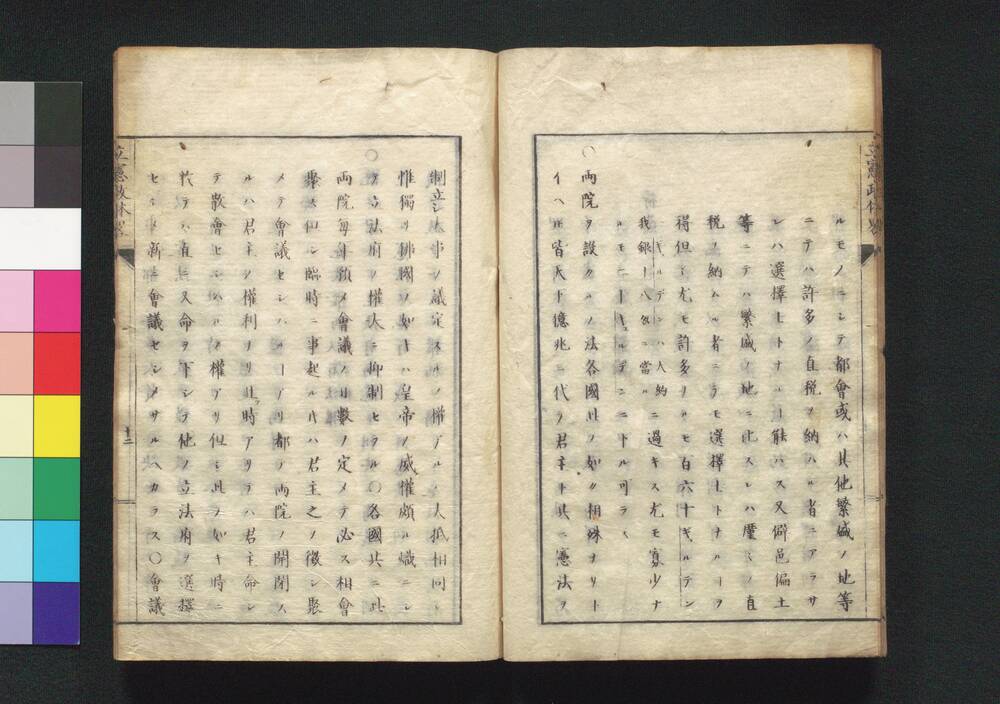 ルモノニシテ都會或ハ其他繁盛ノ地等
ニテハ許多ノ直税ヲ納ハル者ニアラサ
レハ選擇士トナルヿ能ハス又僻邑偏土
等ニテハ繁盛ノ地ニ比スレハ僅ミノ直
税ヲ納ムル者ニテモ選擇士トナルヿヲ
得但シ尤モ許多ナルモ百六十ギルデン
ギルデンハ大約
我銀十八匁ニ當ルニ過キス尤モ寡少ナ
ルモ二十ギュルデンニ下ル可ラス
○両院ヲ設クルノ法各國此ノ如ク相殊ナリト
イヘ𪜈皆天下億兆ニ代ヲ君主ト共ニ憲法ヲ
制立シ法事ヲ議定スルノ權アルハ大抵相同シ
惟獨リ拂國ノ如キハ皇帝ノ威權頗ル熾ニシ
テ立法府ノ權大ニ抑制セラル○各國共ニ此
両院毎年預メ會議ノ日數ヲ定メテ必ス相會
聚ス但シ臨時ニ事起ル𪜈ハ君主之ヲ徴シ聚
メテ會議セシムルヿアリ都テ両院ノ開閉ス
ルハ君主ノ權利ナリ此時アリテハ君主命シ
テ散會セシムルノ權アリ但シ此ノ如キ時ニ
於テハ直ニ又命ヲ下シテ他ノ立法府ヲ選擇
セシメ新ニ會議セシメサルヘカラス○會議
立憲政体畧
十二
立憲政体畧